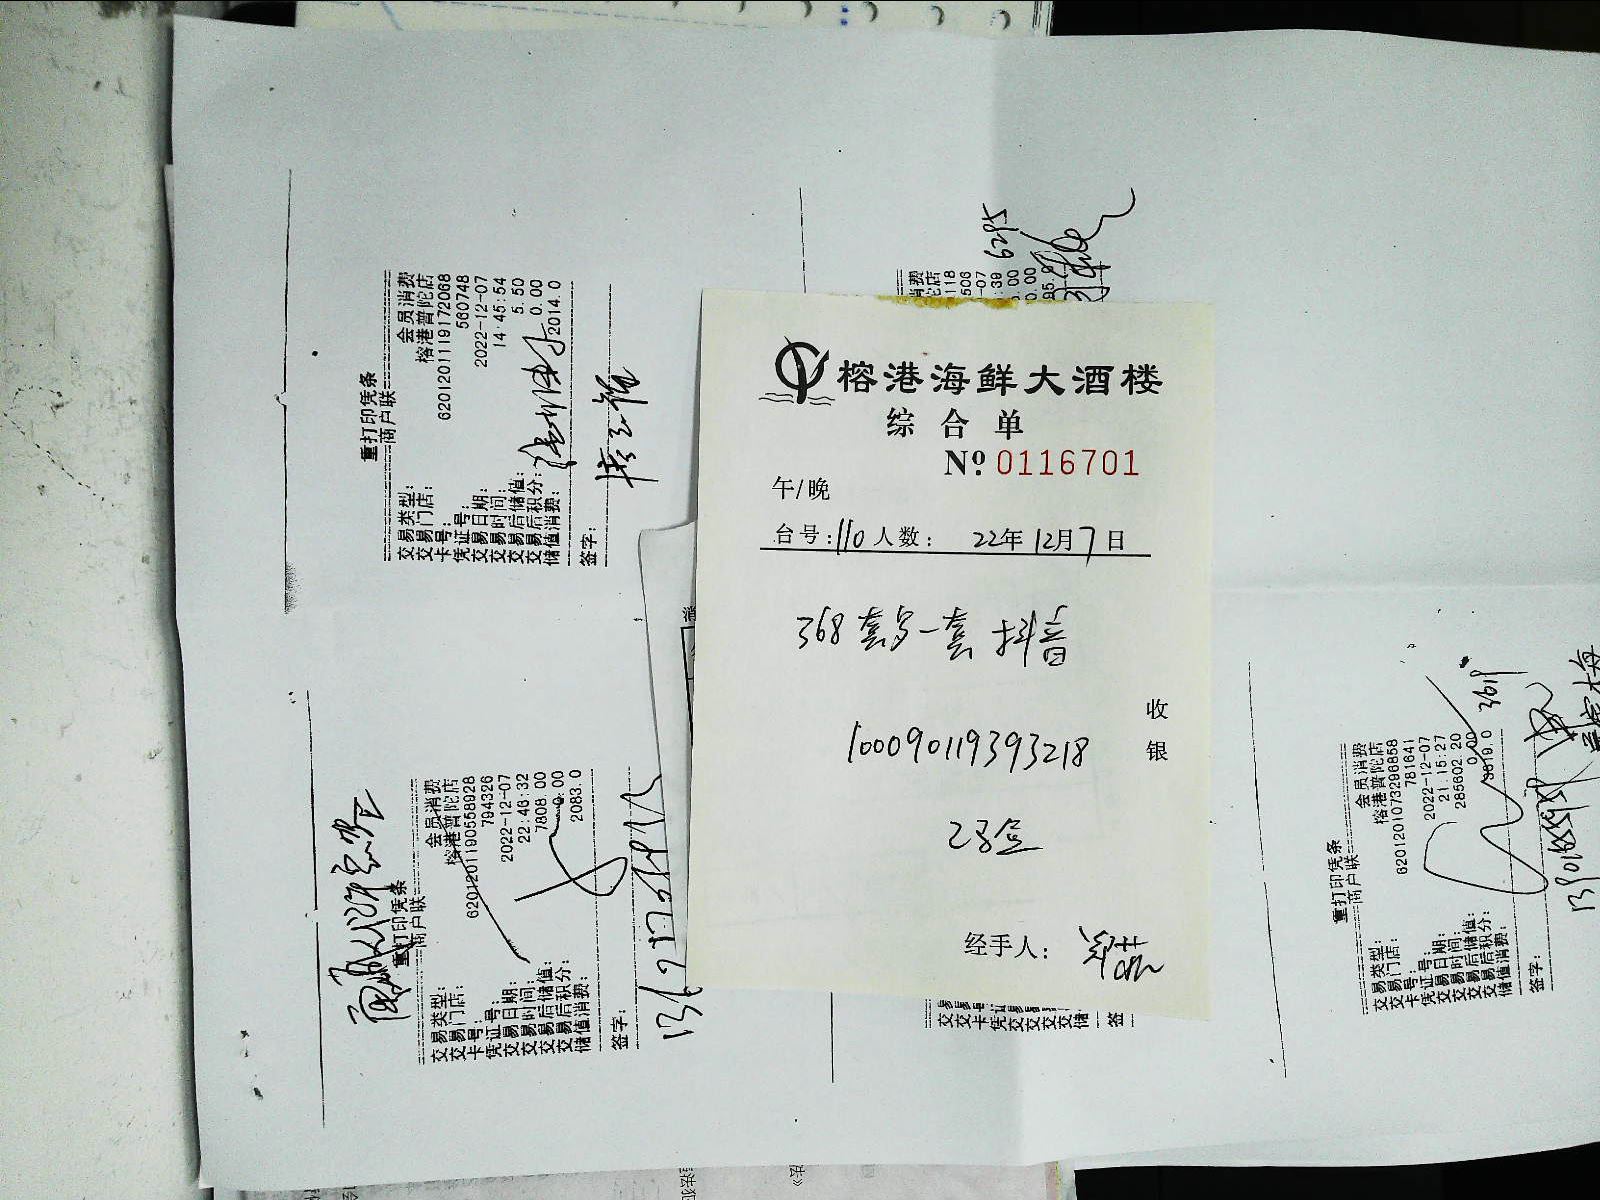 榕港海鲜大酒楼
综合单
Nº 0116701
午/晚
台号:110 人数: 22年12月7日
368套另一套 抖音
收银
100090119393218
经手人:
重打印凭条
商户联
交易类型: 会员消费
交易门店: 榕港普陀店
卡号: 6201201119172068
凭证号: 560748
交易日期: 2022-12-07
交易时间: 14:45:54
交易后储值: 5.50
交易后积分: 0.00
储值消费: 2014.0
签字:
重打印凭条
商户联
交易类型: 会员消费
交易门店: 榕港普陀店
卡号: 6201201190558928
凭证号: 794326
交易日期: 2022-12-07
交易时间: 22:46:32
交易后储值: 7808.00
交易后积分: 0.00
储值消费: 2083.0
签字:
消费
陀店
118
506
-07
:39
.00
0.00
95.0
6295
签
重打印凭条
商户联
交易类型: 会员消费
交易门店: 榕港普陀店
卡号: 6201201073296858
凭证号: 781641
交易日期: 2022-12-07
交易时间: 21:15:27
交易后储值: 285602.20
交易后积分: 0.00
储值消费: 3619.0
3619
签字: